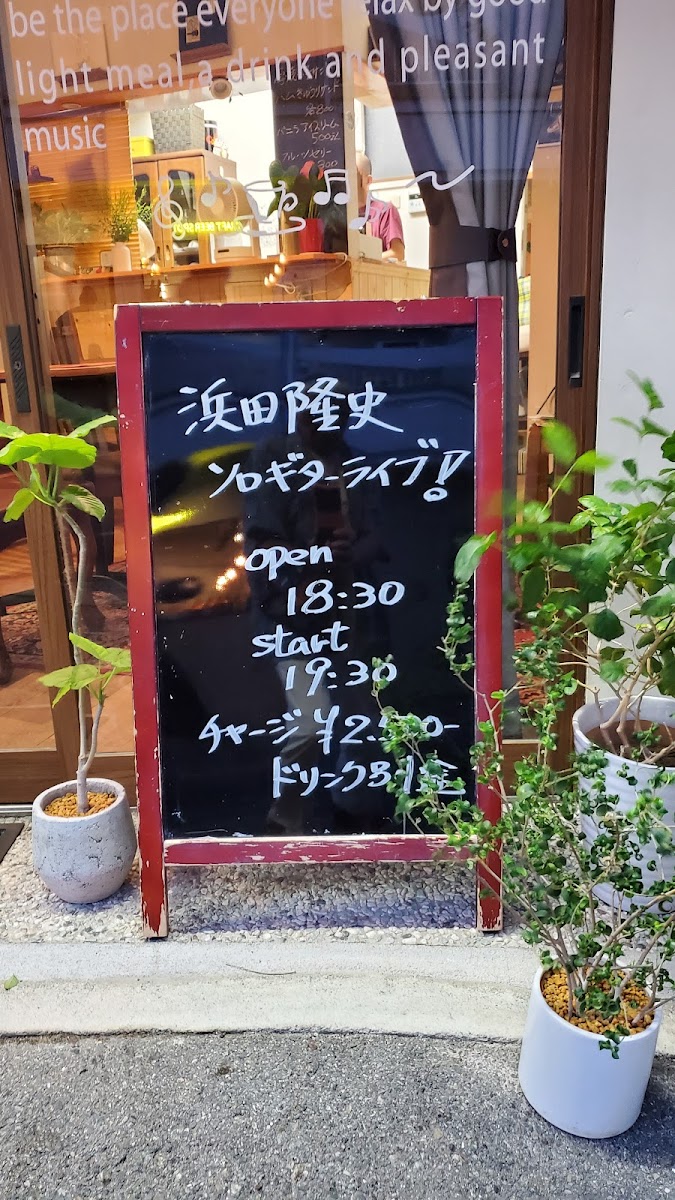 be the place everyone relax by good
light meal,a drink and pleasant
music
バニラアイスクリーム
浜田隆史
ソロギターライブ!
open
18:30
start
19:30
チャージ ¥2.500-
ドリンク別金